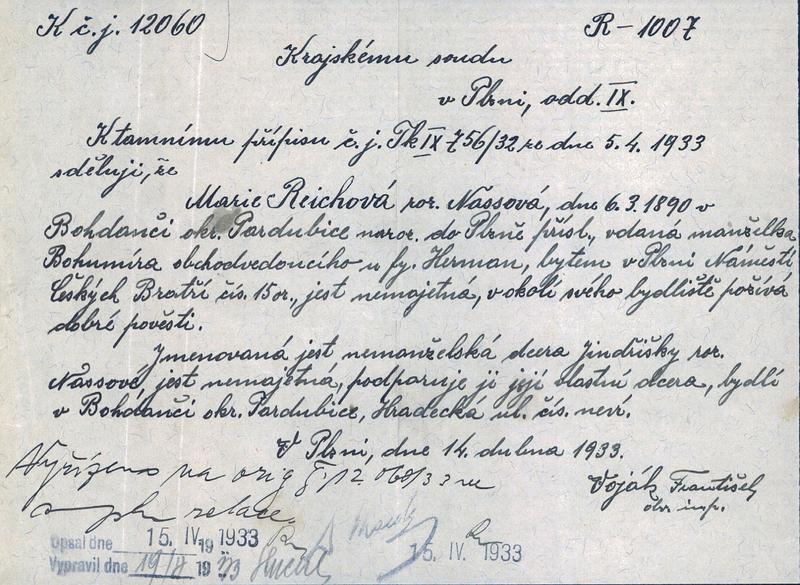 K č. j. 12060
R-1007
Krajskému soudu
v Plzni, odd. IX.
K tamnímu přípisu č. j. Tk IX 756/32 ze dne 5. 4. 1933
sděluji, že
Marie Reichová roz. Nassová, dne 6. 3. 1890 v
Bohdanči okr. Pardubice naroz. do Plzně přísl., vdaná manželka
Bohumíra obchodvedoucího u fy. Herman, bytem v Plzni Náměstí
Českých Bratří čís. 15 or., jest nemajetná, v okolí svého bydliště požívá
dobré pověsti.
Jmenovaná jest nemanželská dcera Jindřišky roz.
Nassové, jest nemajetná, podporuje ji její vlastní dcera, bydlí
v Bohdanči okr. Pardubice, Hradecká ul. čís. neví.
V Plzni, dne 14. dubna 1933.
Vyřízeno na orig
Voják František
obv. insp.
relace
Opsal dne 15. IV. 1933
Vypravil dne 19/4 1933
15. IV. 1933